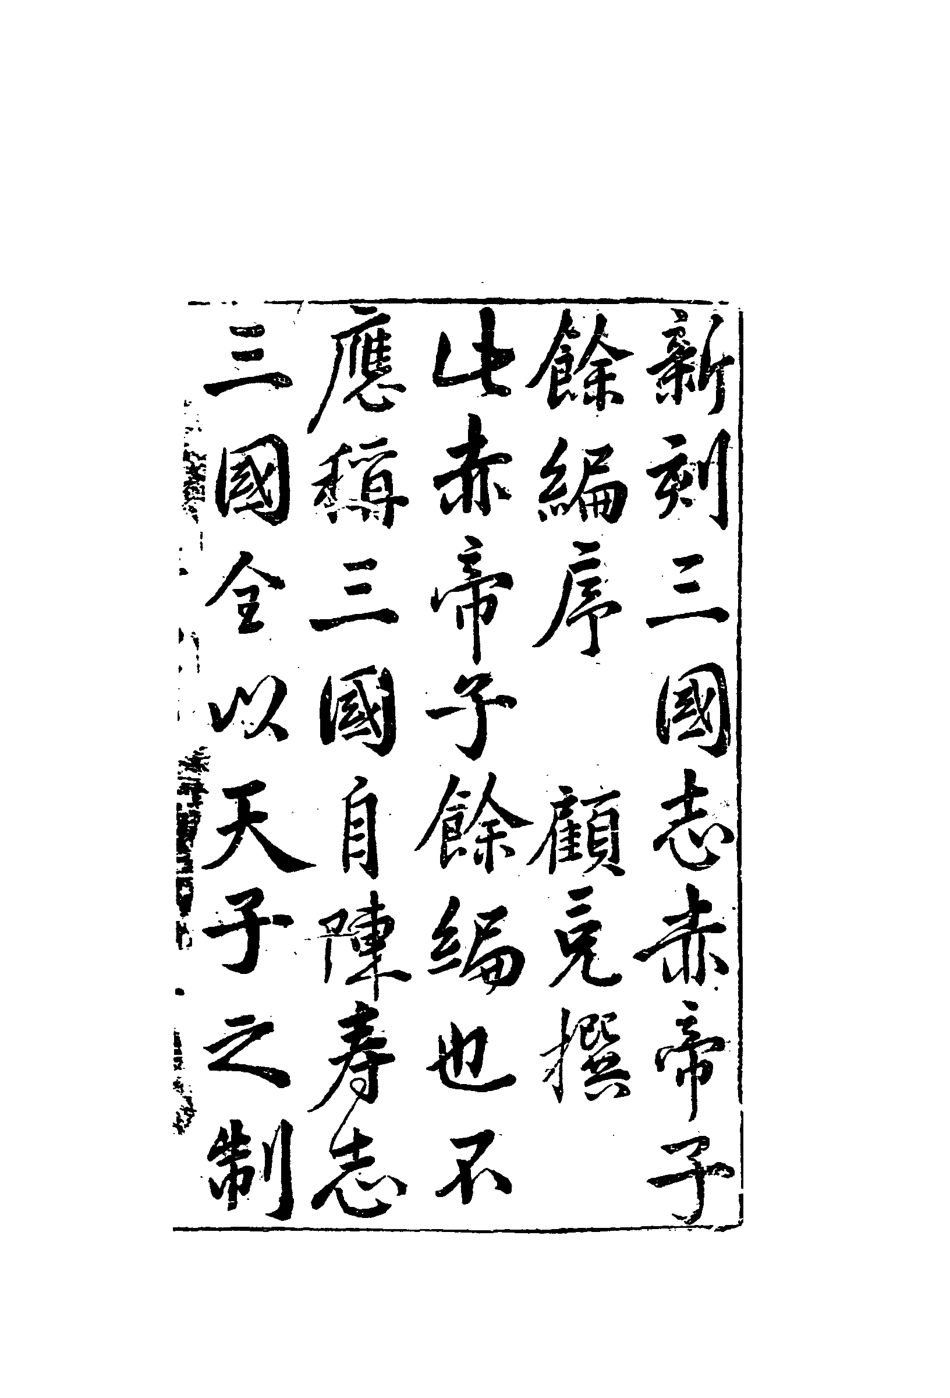 新刻三國志赤帝子
餘編序 顧充撰
此赤帝子餘編也不
應稱三國自陳寿志
三國全以天子之制